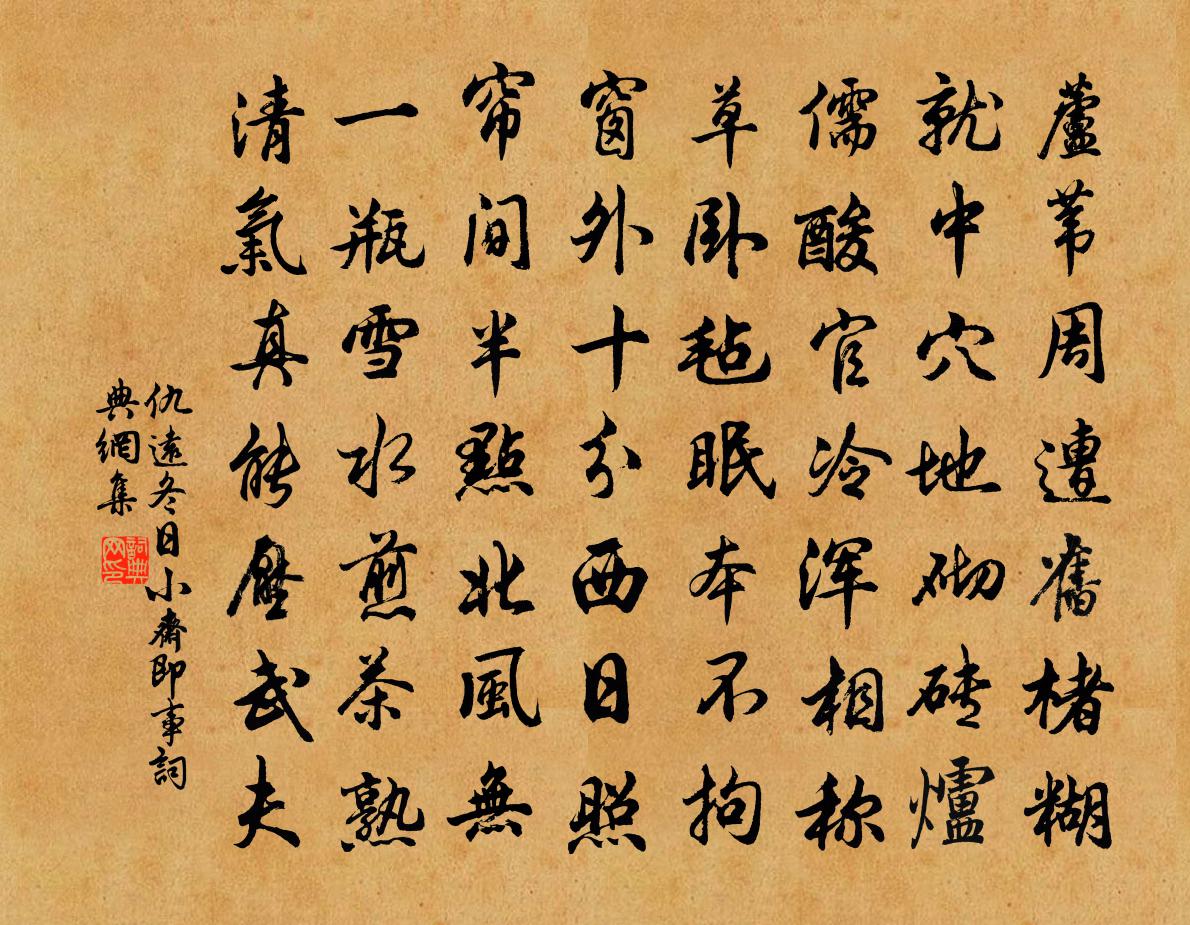 蘆苇周遭舊楮糊
就中穴地砌砖爐
儒酸官冷浑相称
草卧毡眠本不拘
窗外十分西日照
帘间半點北風無
一瓶雪水煎茶熟
清氣真能壓武夫
仇遠冬日小齋即事詞
典網集
詞典
网印